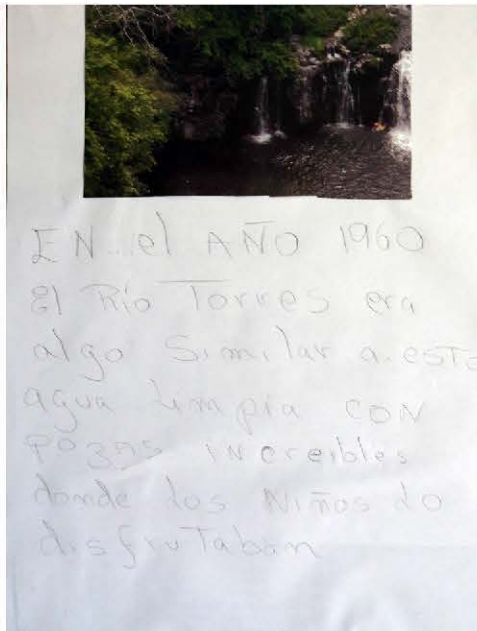 EN el AÑO 1960
El Río Torres era
algo Similar a esto
agua limpia CON
POzas INcreibles
donde los Niños lo
disfrutaban